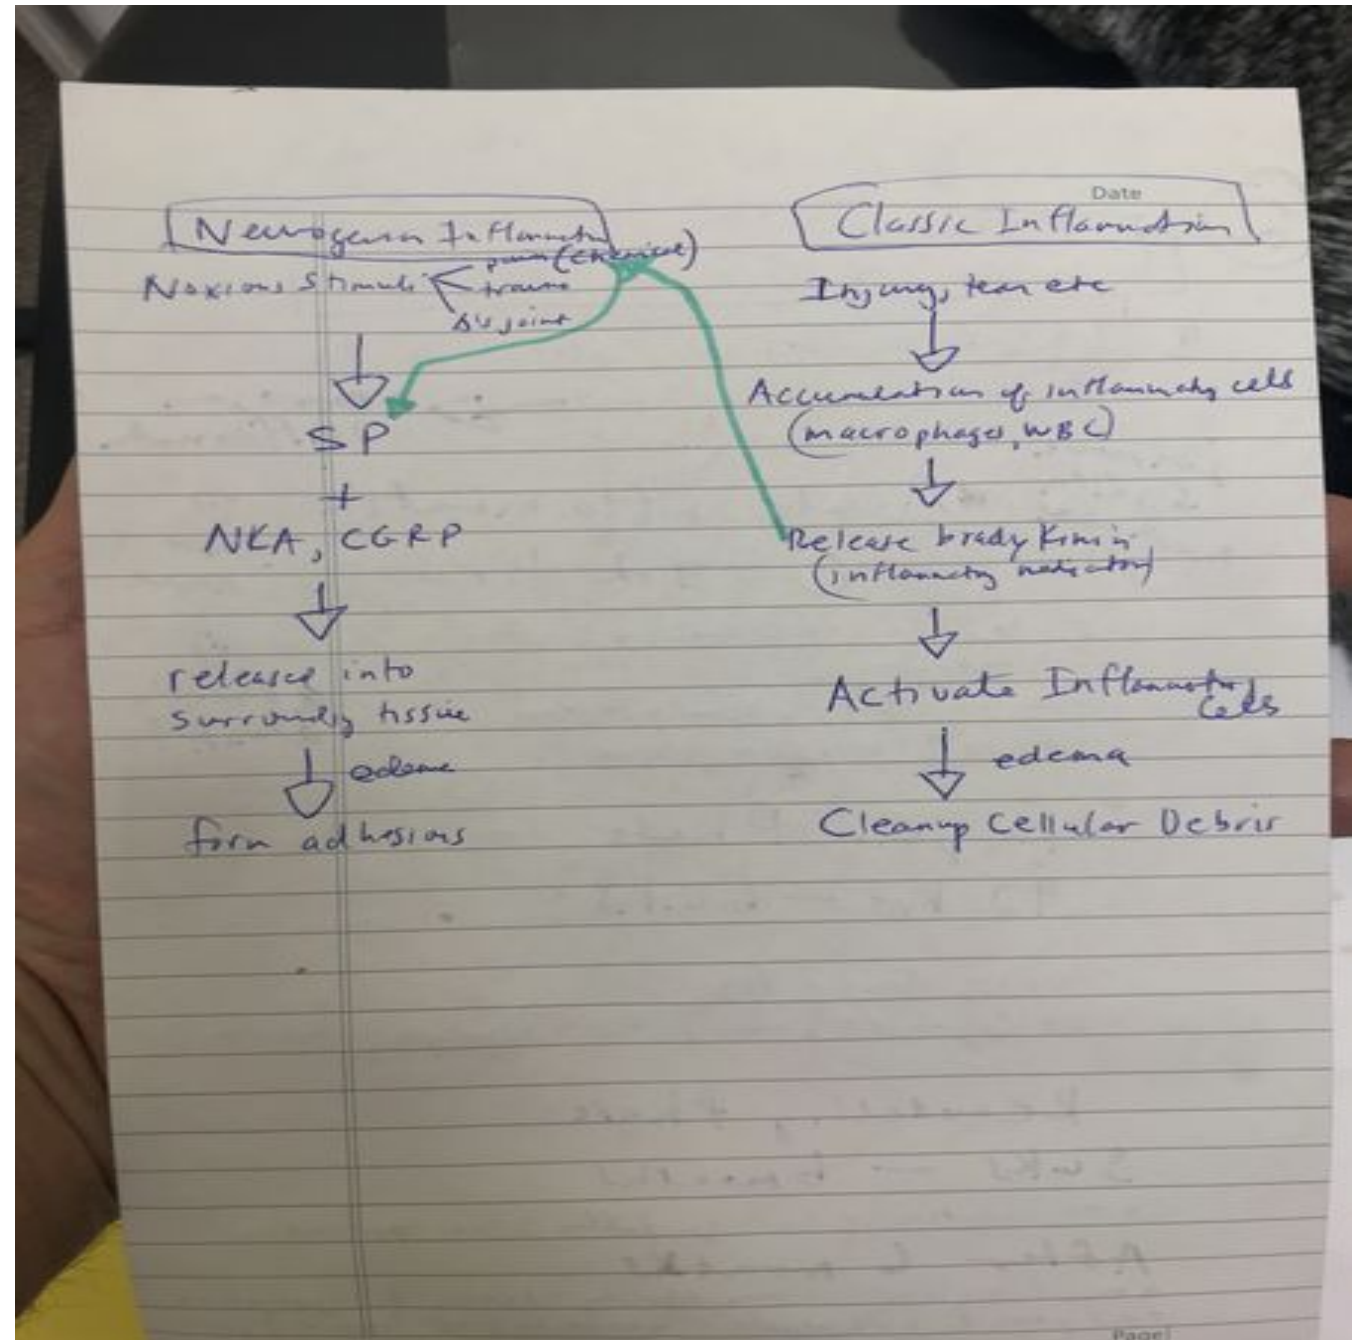 Neurogenic Inflammation
Noxious Stimuli (chemical)
trauma
joint
SP
+
NKA, CGRP
release into
surrounding tissue
edema
form adhesions
Date
Classic Inflammation
Injury, tear etc
Accumulation of inflammatory cells
(macrophages, WBC)
Release bradykinin
(inflammatory mediator)
Activate Inflammatory
Cells
edema
Cleanup Cellular Debris
Page